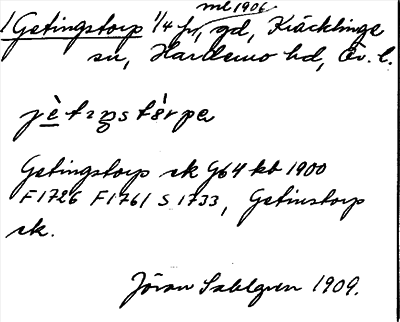 ml 1906
1 Getingstorp 1/4 h, gd, Kräcklinge
sn, Hardemo hd, Ör. l.
jè̱tɪŋstɔ̀rpa
Getingstorp ek G64 kb 1900
F1726 F1761 S 1733, Getinstorp
ek.
Jöran Sahlgren 1909.